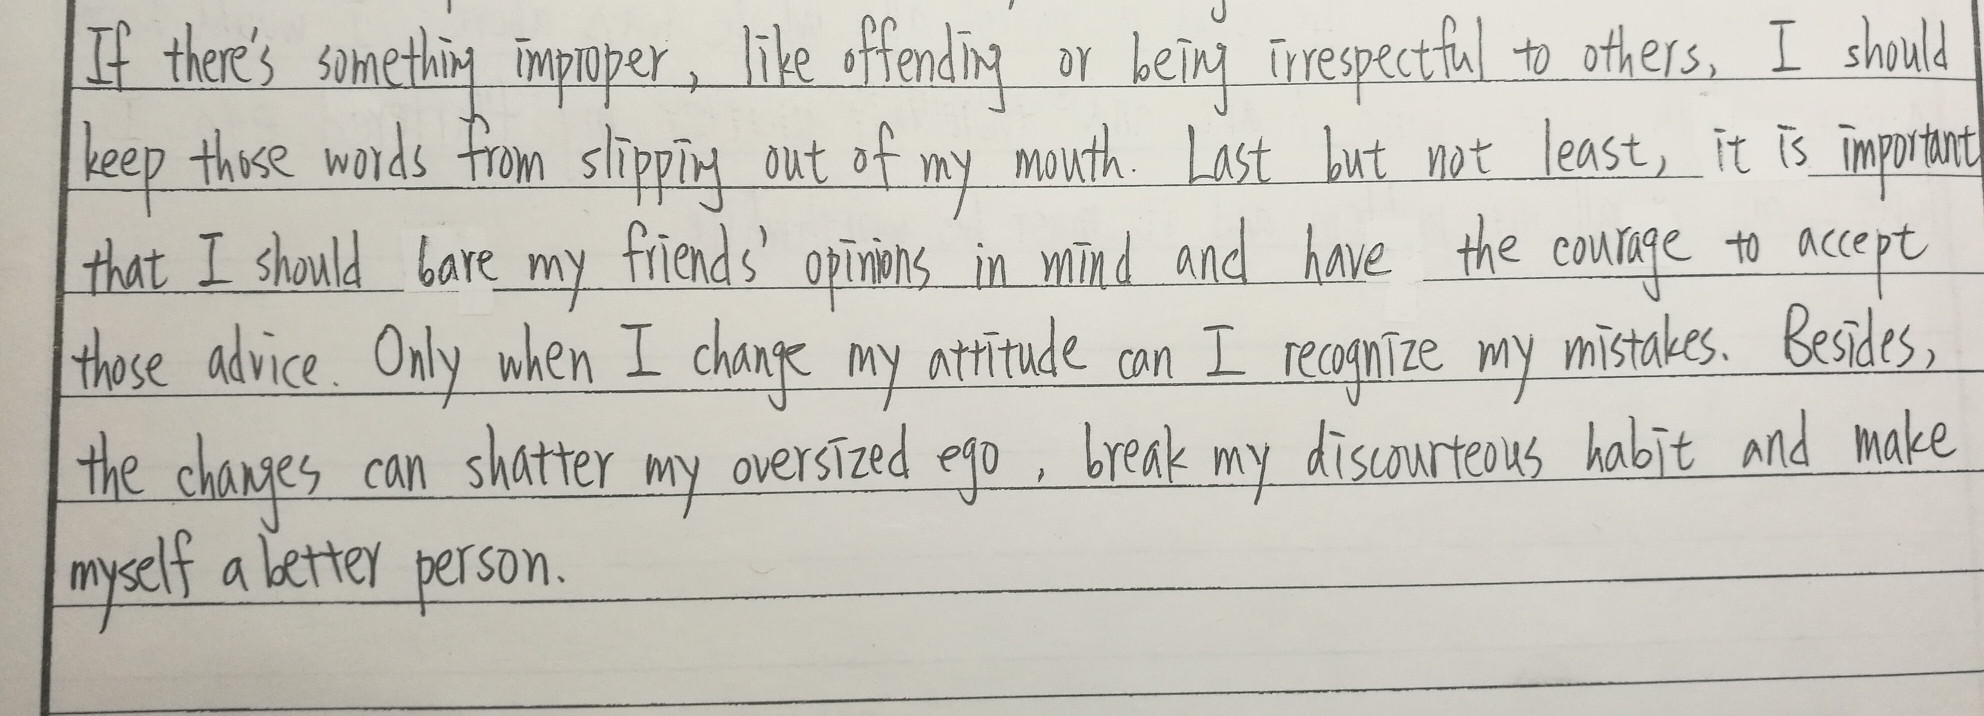 If there's something improper, like offending or being irrespectful to others, I should
keep those words from slipping out of my mouth. Last but not least, it is important
that I should bare my friends' opinions in mind and have the courage to accept
those advice. Only when I change my attitude can I recognize my mistakes. Besides,
the changes can shatter my oversized ego, break my discourteous habit and make
myself a better person.